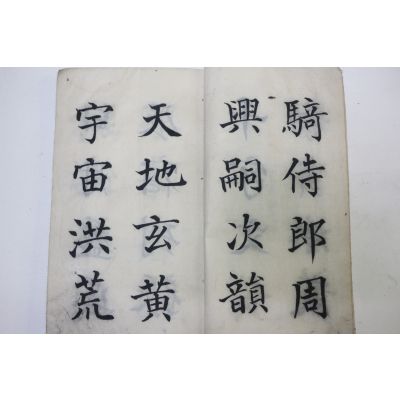 騎侍郎周
興嗣次韻
天地玄黄
宇宙洪荒